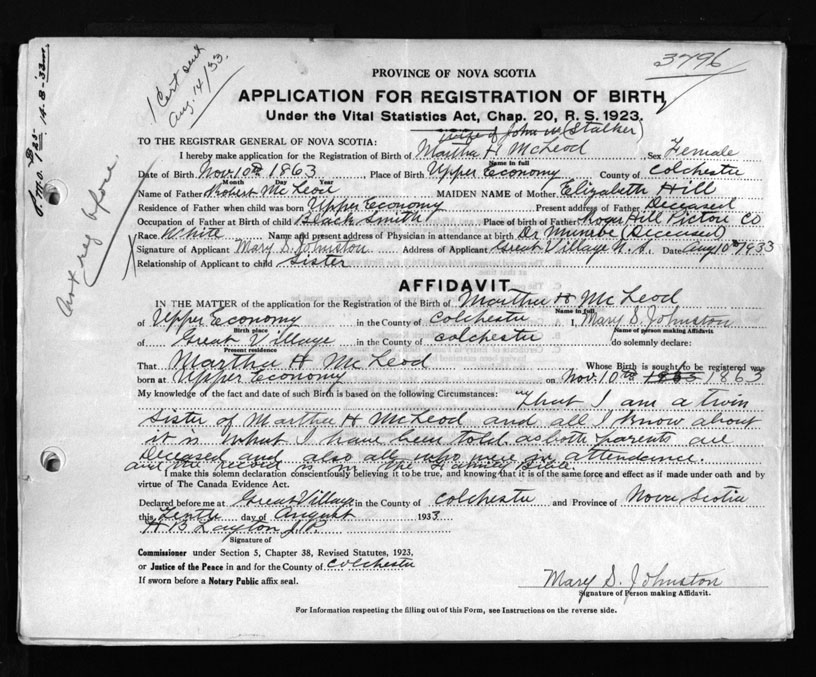 3796
1 Cert sent
Aug. 14/33.
14-8-33
PROVINCE OF NOVA SCOTIA
APPLICATION FOR REGISTRATION OF BIRTH
Under the Vital Statistics Act, Chap. 20, R. S. 1923.
wife of John M (Stalker)
TO THE REGISTRAR GENERAL OF NOVA SCOTIA:
I hereby make application for the Registration of Birth of Martha H McLeod Sex Female
Name in full
Date of Birth Nov. 10th 1863 Place of Birth Upper Economy County of Colchester
Month Day Year
Name of Father Robert McLeod MAIDEN NAME of Mother Elizabeth Hill
Residence of Father when child was born Upper Economy Present address of Father Deceased
Occupation of Father at Birth of child Black Smith Place of birth of Father Roger Hill Pictou Co
Race White Name and present address of Physician in attendance at birth Dr (Deceased)
Signature of Applicant Mary S. Johnston Address of Applicant Great Village N.S. Date Aug 10th 1933
Relationship of Applicant to child Sister
not reg before.
AFFIDAVIT
IN THE MATTER of the application for the Registration of the Birth of Martha H McLeod
Name in full
of Upper Economy in the County of Colchester I, Mary S. Johnston
Birth place Name of person making Affidavit
of Great Village in the County of Colchester do solemnly declare:
Present residence
That Martha H McLeod Whose Birth is sought to be registered was
born at Upper Economy on Nov. 10th 1863
My knowledge of the fact and date of such Birth is based on the following Circumstances: That I am a twin
sister of Martha H McLeod and all I know about
it is what I have been told as both parents are
Deceased and also all who were in attendance.
and the record is in the Family Bible
I make this solemn declaration conscientiously believing it to be true, and knowing that it is of the same force and effect as if made under oath and by
virtue of The Canada Evidence Act.
Declared before me at Great Village in the County of Colchester and Province of Nova Scotia
this Tenth day of August 1933
H B Layton J.P.
Signature of
Commissioner under Section 5, Chapter 38, Revised Statutes, 1923,
or Justice of the Peace in and for the County of Colchester
If sworn before a Notary Public affix seal.
Mary S. Johnston
Signature of Person making Affidavit.
For Information respecting the filling out of this Form, see Instructions on the reverse side.